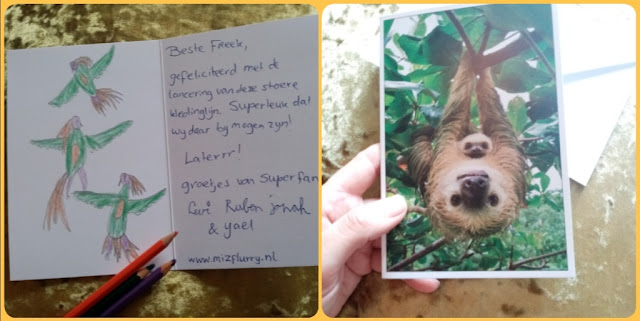 Beste Freek,
gefeliciteerd met de
lancering van deze stoere
kledinglijn. Superleuk dat
wij daar bij mogen zijn!
Laterrr!
groetjes van Superfan
Levi Ruben Jonah
& Yael
www.mizflurry.nl